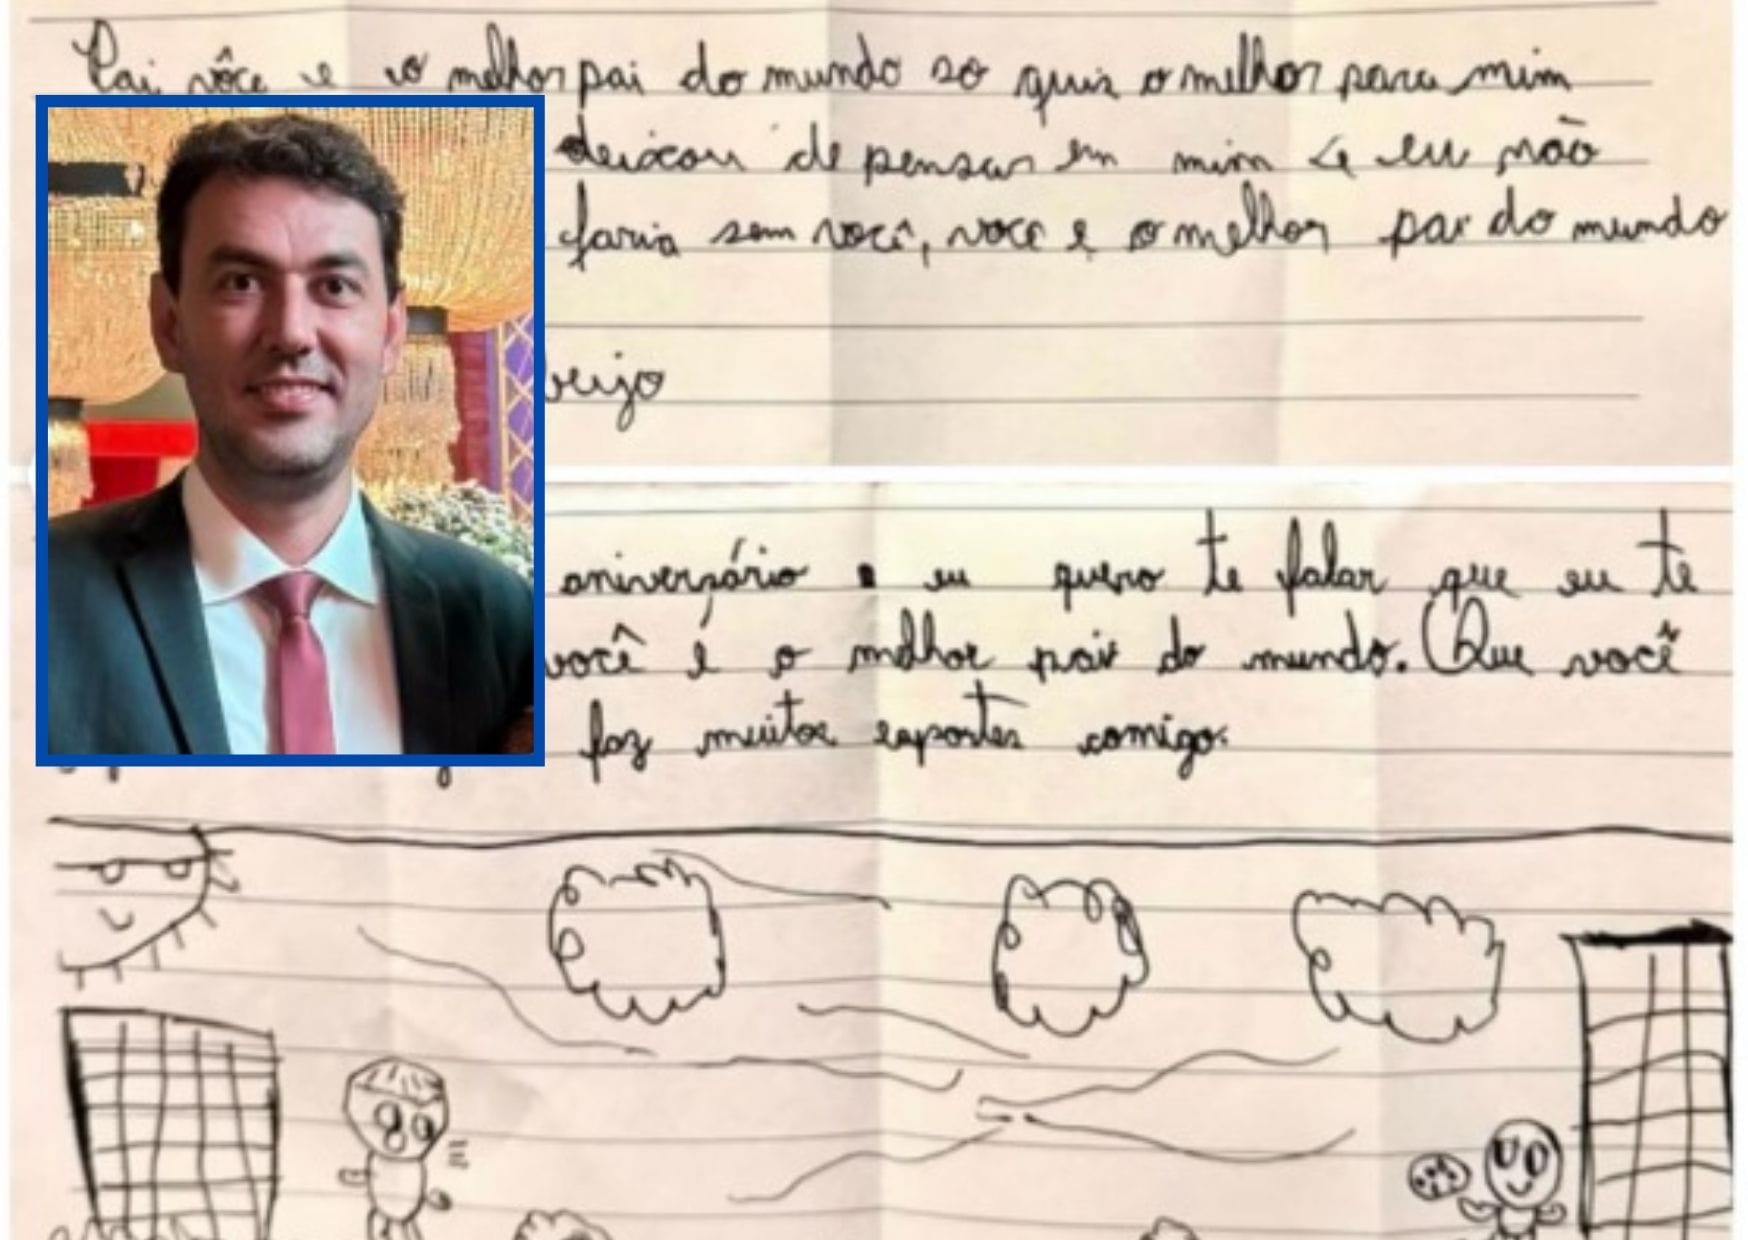 Pai vôce e o melhor pai do mundo so quis o melhor para mim
deixou de pensar em mim e eu não
faria sem você, voce e o melhor pai do mundo
beijo
aniverçário eu quero te falar que eu te
você é o melhor pai do mundo. Que você
faz muitos esportes comigo.